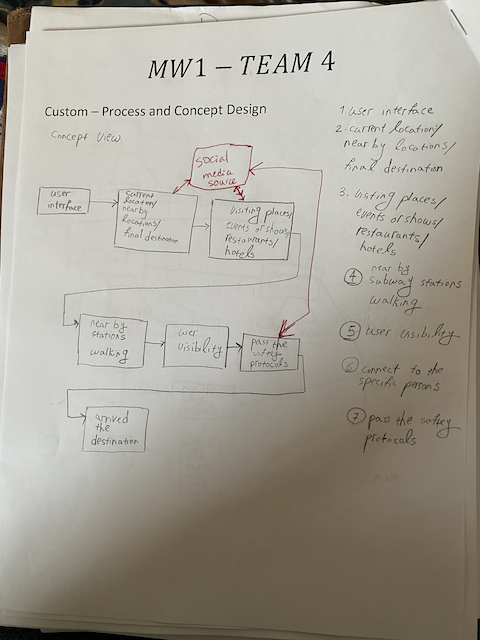 MW1 – TEAM 4
Custom – Process and Concept Design
Concept View
social
media
source
user
interface
current
location/
near by
locations/
final destination
visiting places/
events or shows/
restaurants/
hotels
near by
stations
walking
user
visibility
pass the
saftey
protocols
arrived
the
destination
1. user interface
2. current location/
near by locations/
final destination
3. visiting places/
events or shows/
restaurants/
hotels
4 near by
subway stations
walking
5 user visibility
6 connect to the
specific persons
7 pass the saftey
protocals